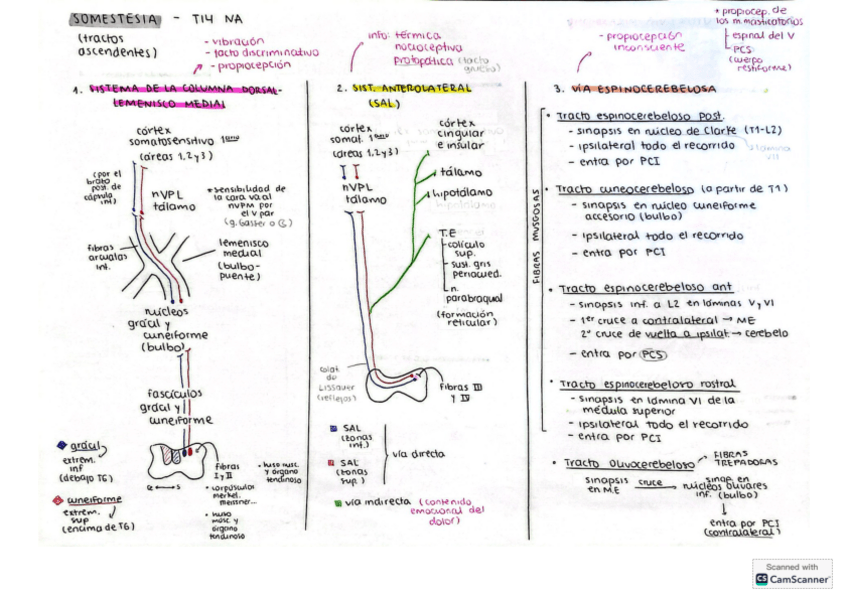 SOMESTESIA - T14 NA
(tractos
ascendentes)
- vibración
- tacto discriminativo
- propiocepción
1. SISTEMA DE LA COLUMNA DORSAL-
LEMENISCO MEDIAL
córtex
somatosensitivo 1ario
(áreas 1,2 y 3)
(por el
brazo
post. de
cápsula
int)
nVPL
tálamo
*sensibilidad de
la cara va al
nVPM por
el V par
(g. Gasser o
fibras
arcuatas
int.
lemenisco
medial
(bulbo-
puente)
núcleos
grácil y
cuneiforme
(bulbo)
fascículos
grácil y
cuneiforme
grácil
extrem.
inf
(debajo T6)
cuneiforme
extrem.
sup
(encima de T6)
fibras
I y II
• corpúsculos
merkel,
meissner...
• huso
musc. y
órgano
tendinoso
• huso musc.
y órgano
tendinoso
info: térmica
nociceptiva
protopática (tacto
grueso)
2. SIST. ANTEROLATERAL
(SAL)
córtex
somat. 1ario
(áreas 1,2 y 3)
nVPL
tálamo
córtex
cingular
e insular
tálamo
hipotálamo
T.E
colículo
sup.
sust. gris
periacued.
n.
parabraquial
(formación
reticular)
colat.
de
Lissauer
(reflejos)
fibras III
y IV
SAL
(zonas
inf.)
SAL
(zonas
sup.)
vía directa
vía indirecta (contenido
emocional del
dolor)
- propiocepción
inconsciente
* propiocep. de
los m. masticatorios
espinal del V
PCS
(cuerpo
restiforme)
3. VÍA ESPINOCEREBELOSA
FIBRAS MUSGOSAS
• Tracto espinocerebeloso post.
- sinapsis en núcleo de Clarke (T1-L2)
lámina
VII
- ipsilateral todo el recorrido
- entra por PCI
• Tracto cuneocerebeloso (a partir de T1)
- sinapsis en núcleo cuneiforme
accesorio (bulbo)
- ipsilateral todo el recorrido
- entra por PCI
• Tracto espinocerebeloso ant
- sinapsis inf. a L2 en láminas V y VI
- 1er cruce a contralateral → ME
2º cruce de vuelta a ipsilat → cerebelo
- entra por PCS
• Tracto espinocerebelovo rostral
- sinapsis en lámina VI de la
médula superior
- ipsilateral todo el recorrido
- entra por PCI
• Tracto olivocerebeloso → FIBRAS
TREPADORAS
sinapsis
en ME
cruce →
sinap. en
núcleos olivares
inf. (bulbo)
↓
entra por PCI
(contralateral)
Scanned with
CS CamScanner